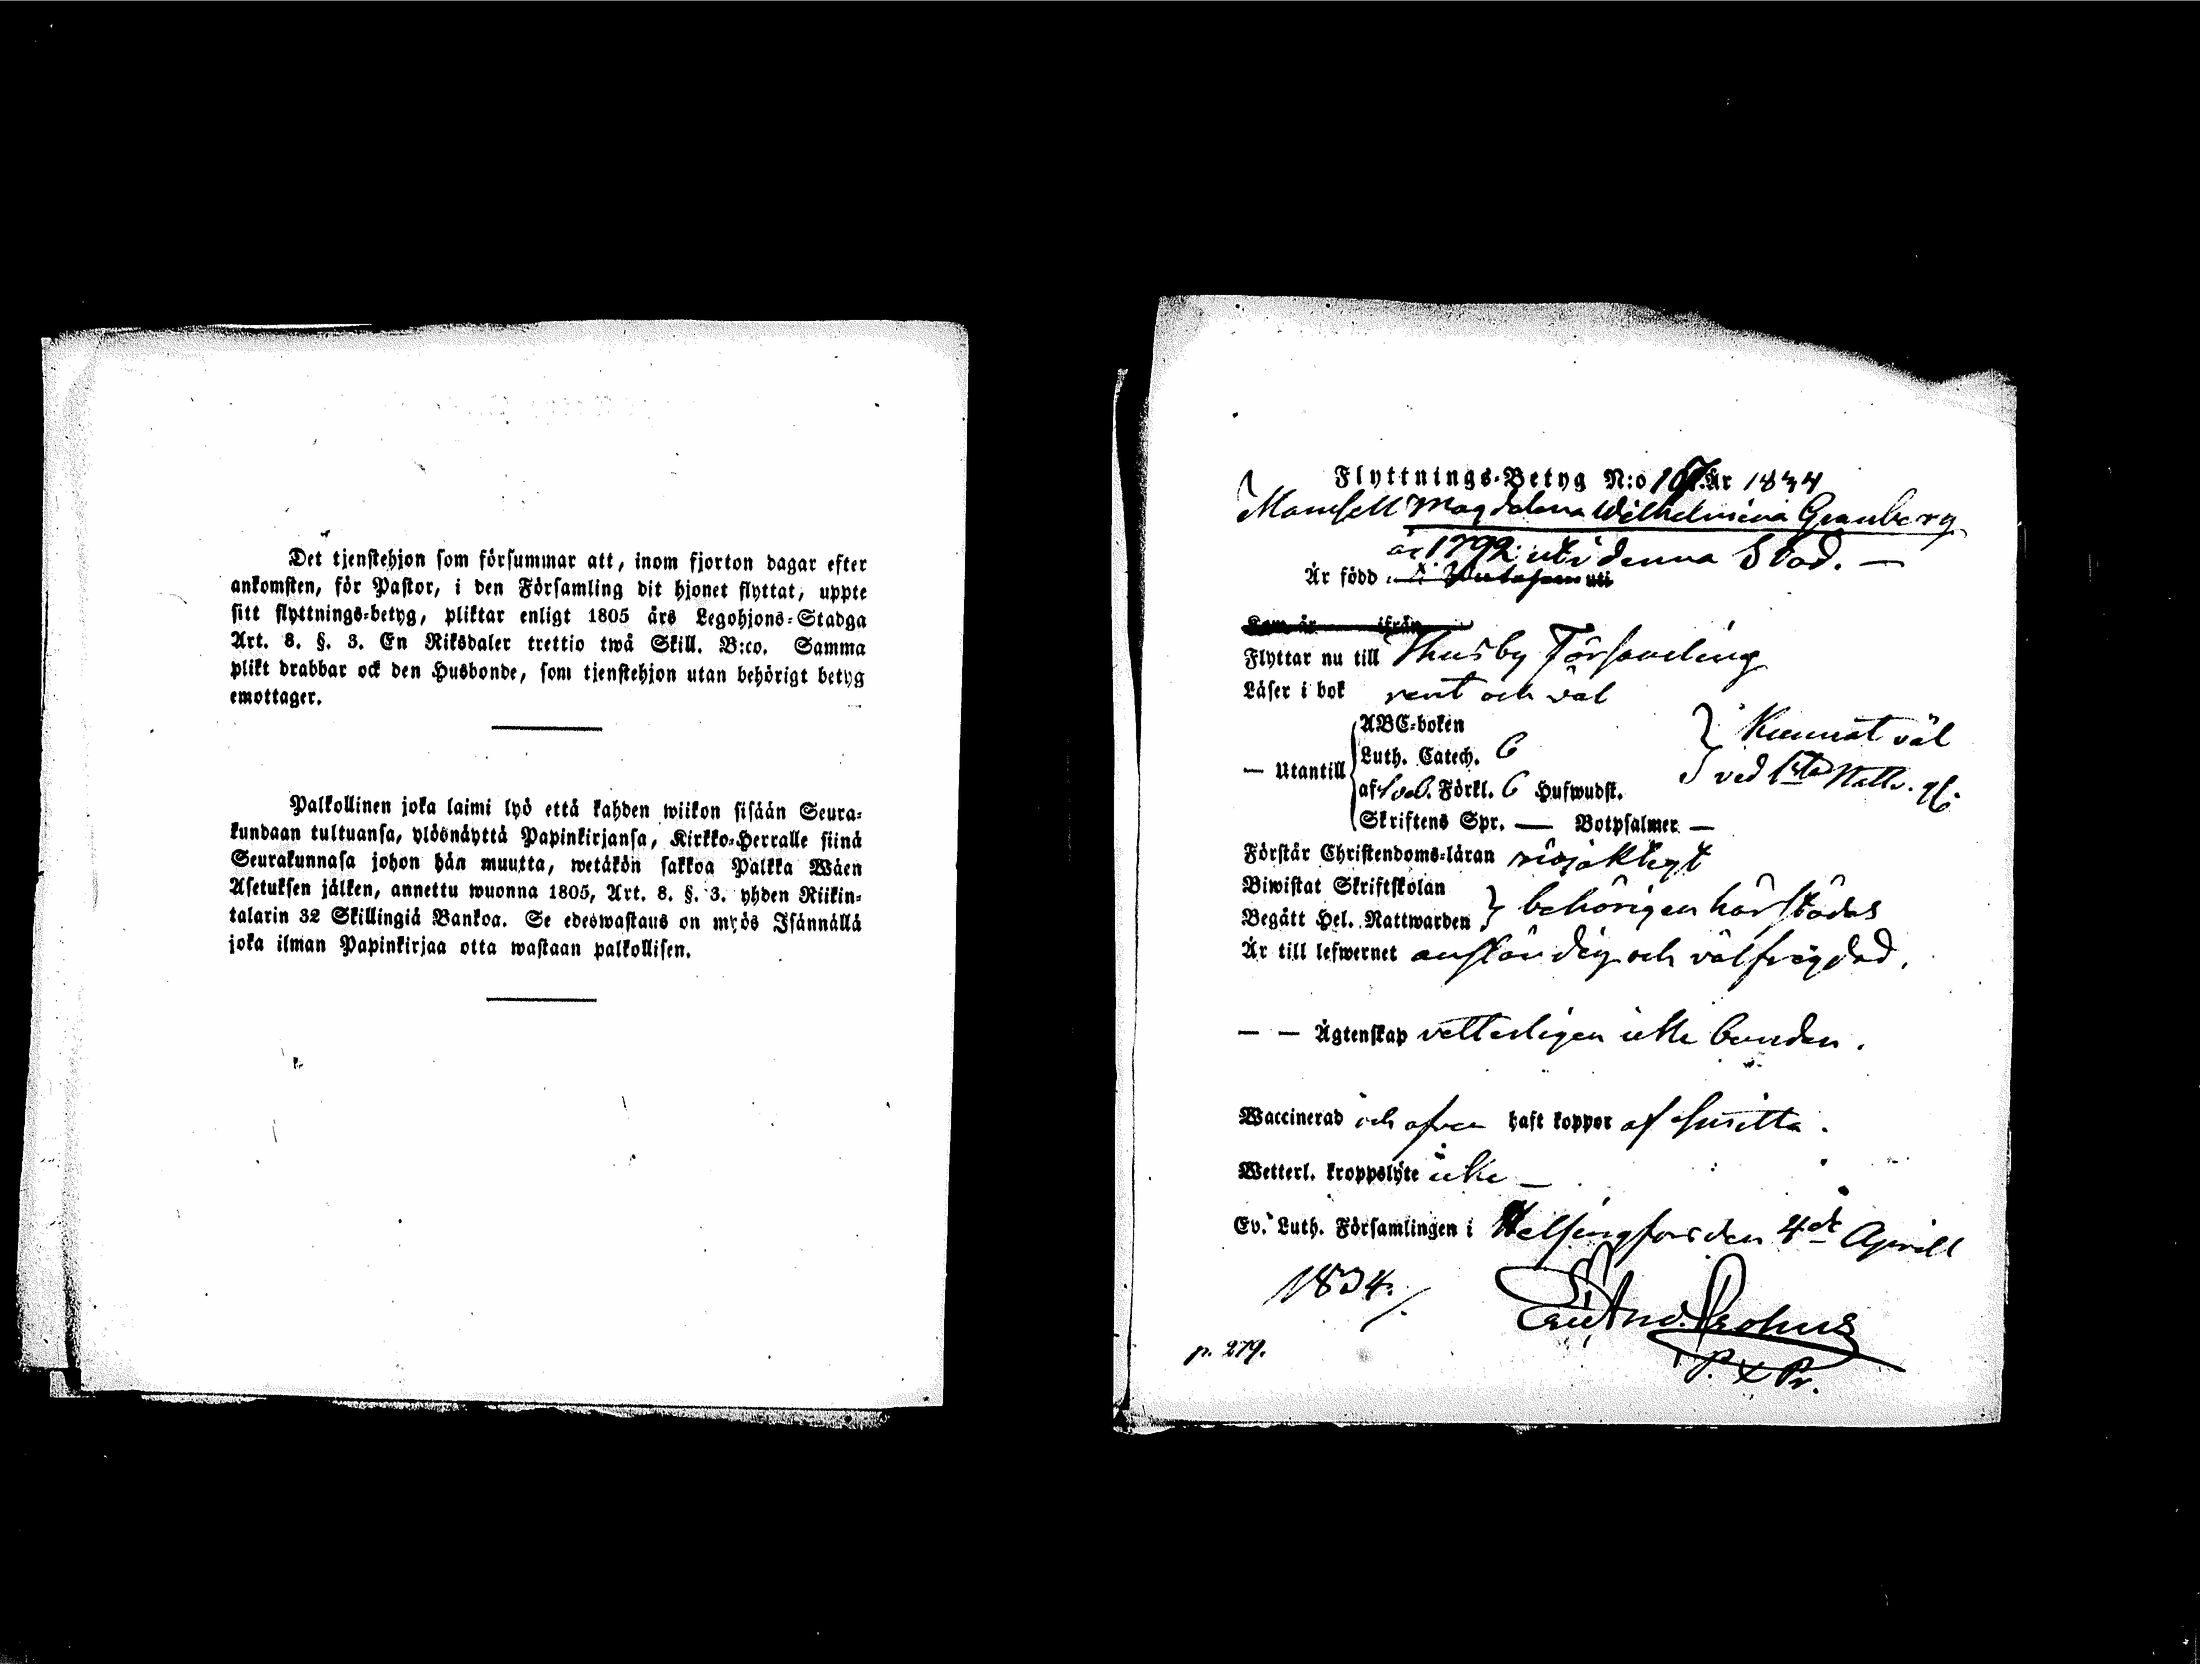 Det tjenstehjon som försummar att, inom fjorton dagar efter
ankomsten, för Pastor, i den Församling dit hjonet flyttat, uppte
sitt flyttnings-betyg, pliktar enligt 1805 års Legohjons-Stadga
Art. 8. §. 3. En Riksdaler trettio twå Skill. B:co. Samma
plikt drabbar ock den Husbonde, som tjenstehjon utan behörigt betyg
emottager.
Palkollinen joka laimi lyö että kahden wiikon sisään Seura-
kundaan tultuansa, ylösnäyttä Papinkirjansa, Kirkko-Herralle siinä
Seurakunnasa johon hän muutta, wetäkön sakkoa Palkka Wäen
Asetuksen jälken, annettu wuonna 1805, Art. 8. §. 3. yhden Riikin-
talarin 32 Skillingiä Bankoa. Se edeswastaus on myös Isännällä
joka ilman Papinkirjaa otta wastaan palkollisen.
Flyttnings-Betyg N:o 107. År 1834
Mamsell Magdalena Wilhelmina Granberg
år 1792 uti denna Stad. —
Är född uti
Kom år ifrån
Flyttar nu till Thusby Församling
Läser i bok rent och väl
ABC-boken
Luth. Catech. 6 Kunnat väl
— Utantill
af Sveb. Förkl. 6 Hufwudst. ved Nattv.
Skriftens Spr. — Botpsalmer —
Förstår Christendoms-läran nöjaktigt
Biwistat Skriftskolan
Begått Hel. Nattwarden behörigen härstädes
Är till lefwernet anständig och välfrägdad.
— — Ägtenskap vetterligen icke bunden.
Waccinerad och äfven haft koppor af smitta.
Wetterl. kroppslyte icke —
Ev. Luth. Församlingen i Helsingfors den 4de Aprill
1834.
And. Crohns
P. X Pr.
p. 279.